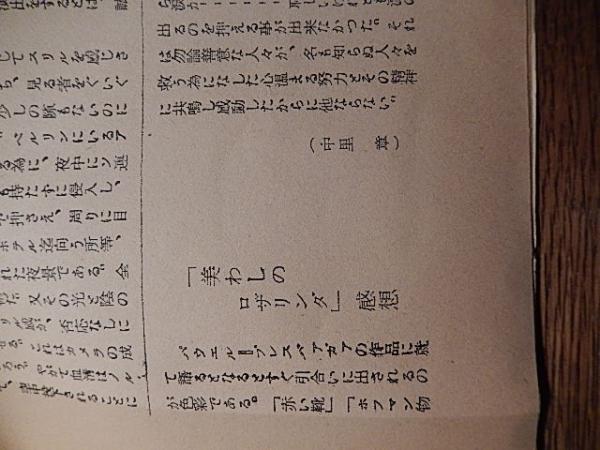 してスリルを感じさ
ち、見る者をぐいぐ
少しの隙もないのに
ベルリンにいるア
る為に、夜中にソ連
も持たずに侵入し、
で押さえ、周りに目
ホテル迄向う所等、
れた夜景である。全
又その光と陰の
リル感が、否応なしに
る。これはカメラの成
やがて血清はノル
されることに
出るのを押える事が出来なかった。それ
は勿論善意な人々が、名も知らぬ人々を
救う為になした心温まる努力とその精神
に共鳴し感動したからに他ならない。
（中里　章）
「美わしの
ロザリンダ」感想
パウエル＝プレスバアガアの作品に就
て語るとなるとすぐ引合いに出されるの
が色彩である。「赤い靴」「ホフマン物